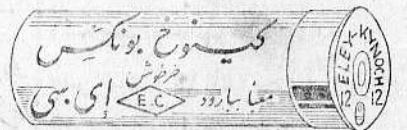 کینوخ یونکس
خرطوش
معبا ببارود <E.C> ای سی
ELEY-KYNOCH
12 12